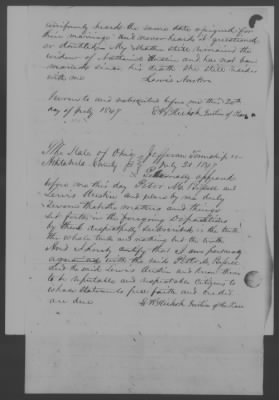 uniformly heards the same date assigned for
their marriage and never heards it questioned
or doubted. My Mother still remained the
widow of Nathaniel Austin and has not ban
married since his death She still resides
with me
Lewis Austin
Sworn to and subscribed before me this 20th
day of July 1849
Justice of Peace
The State of Ohio Jefferson Township ss
Ashtabula County July 20 1849
Personally appeared
before me this day Peter M.
Lewis Austin and were by me duly
Sworn that the matters and things
set forth in the foregoing Depositions
by them respectfully subscribed is the truth
the whole truth and nothing but the truth
And I hereby certify that I am personaly
acquainted with the said Peter M.
and the said Lewis Austin and know them
to be reputable and respectable Citizens to
whose Statements full faith and credit
are due
Justice of the Peace